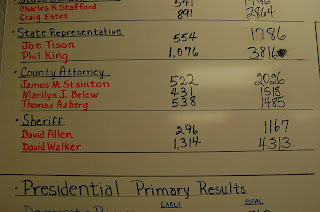 Charles R. Stafford 541
Craig Estes 891 2864
·State Representative
Joe Tison 554 1786
Phil King 1,076 3816
·County Attorney
James M. Stainton 522 2026
Marilyn J. Belew 431 1518
Thomas Aaberg 538 1485
·Sheriff
David Allen 296 1167
David Walker 1,314 4313
·Presidential Primary Results
EARLY TOTAL